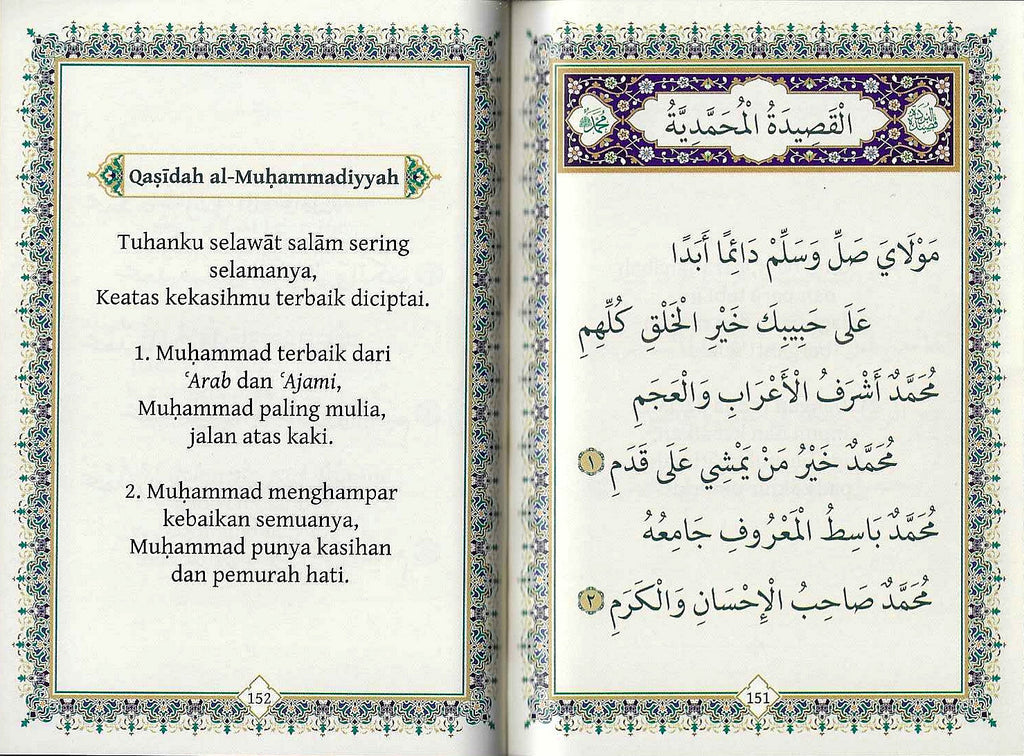 الْقَصِيدَةُ الْمُحَمَّدِيَّةُ
مَوْلَايَ صَلِّ وَسَلِّمْ دَائِمًا أَبَدًا
عَلَى حَبِيبِكَ خَيْرِ الْخَلْقِ كُلِّهِمِ
مُحَمَّدٌ أَشْرَفُ الْأَعْرَابِ وَالْعَجَمِ
مُحَمَّدٌ خَيْرُ مَنْ يَمْشِي عَلَى قَدَمِ ١
مُحَمَّدٌ بَاسِطُ الْمَعْرُوفِ جَامِعُهُ
مُحَمَّدٌ صَاحِبُ الْإِحْسَانِ وَالْكَرَمِ ٢
151
Qaṣīdah al-Muḥammadiyyah
Tuhanku selawāt salām sering
selamanya,
Keatas kekasihmu terbaik diciptai.
1. Muḥammad terbaik dari
ʿArab dan ʿAjami,
Muḥammad paling mulia,
jalan atas kaki.
2. Muḥammad menghampar
kebaikan semuanya,
Muḥammad punya kasihan
dan pemurah hati.
152